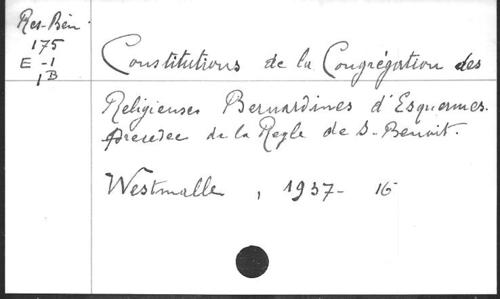 Res-Bén.
175
E-1
1B
Constitutions de la Congrégation des
Religieuses Bernardines d'Esquermes.
precedee de la Regle de S-Benoit.
Westmalle, 1937- 16